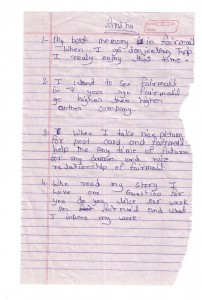 1- My best memory is in fairmail
When I go
trip
I really enjoy that time.
2. I want to see fairmail
in 7 year ago fairmail
go higher then higher
other company.
3. I When I take nice picture
for post card and fairmail
help me any time of future
for my dream and nice
relationship of fairmail
4. Who read my story I
have one question for
you do you like our work
and what
my work.